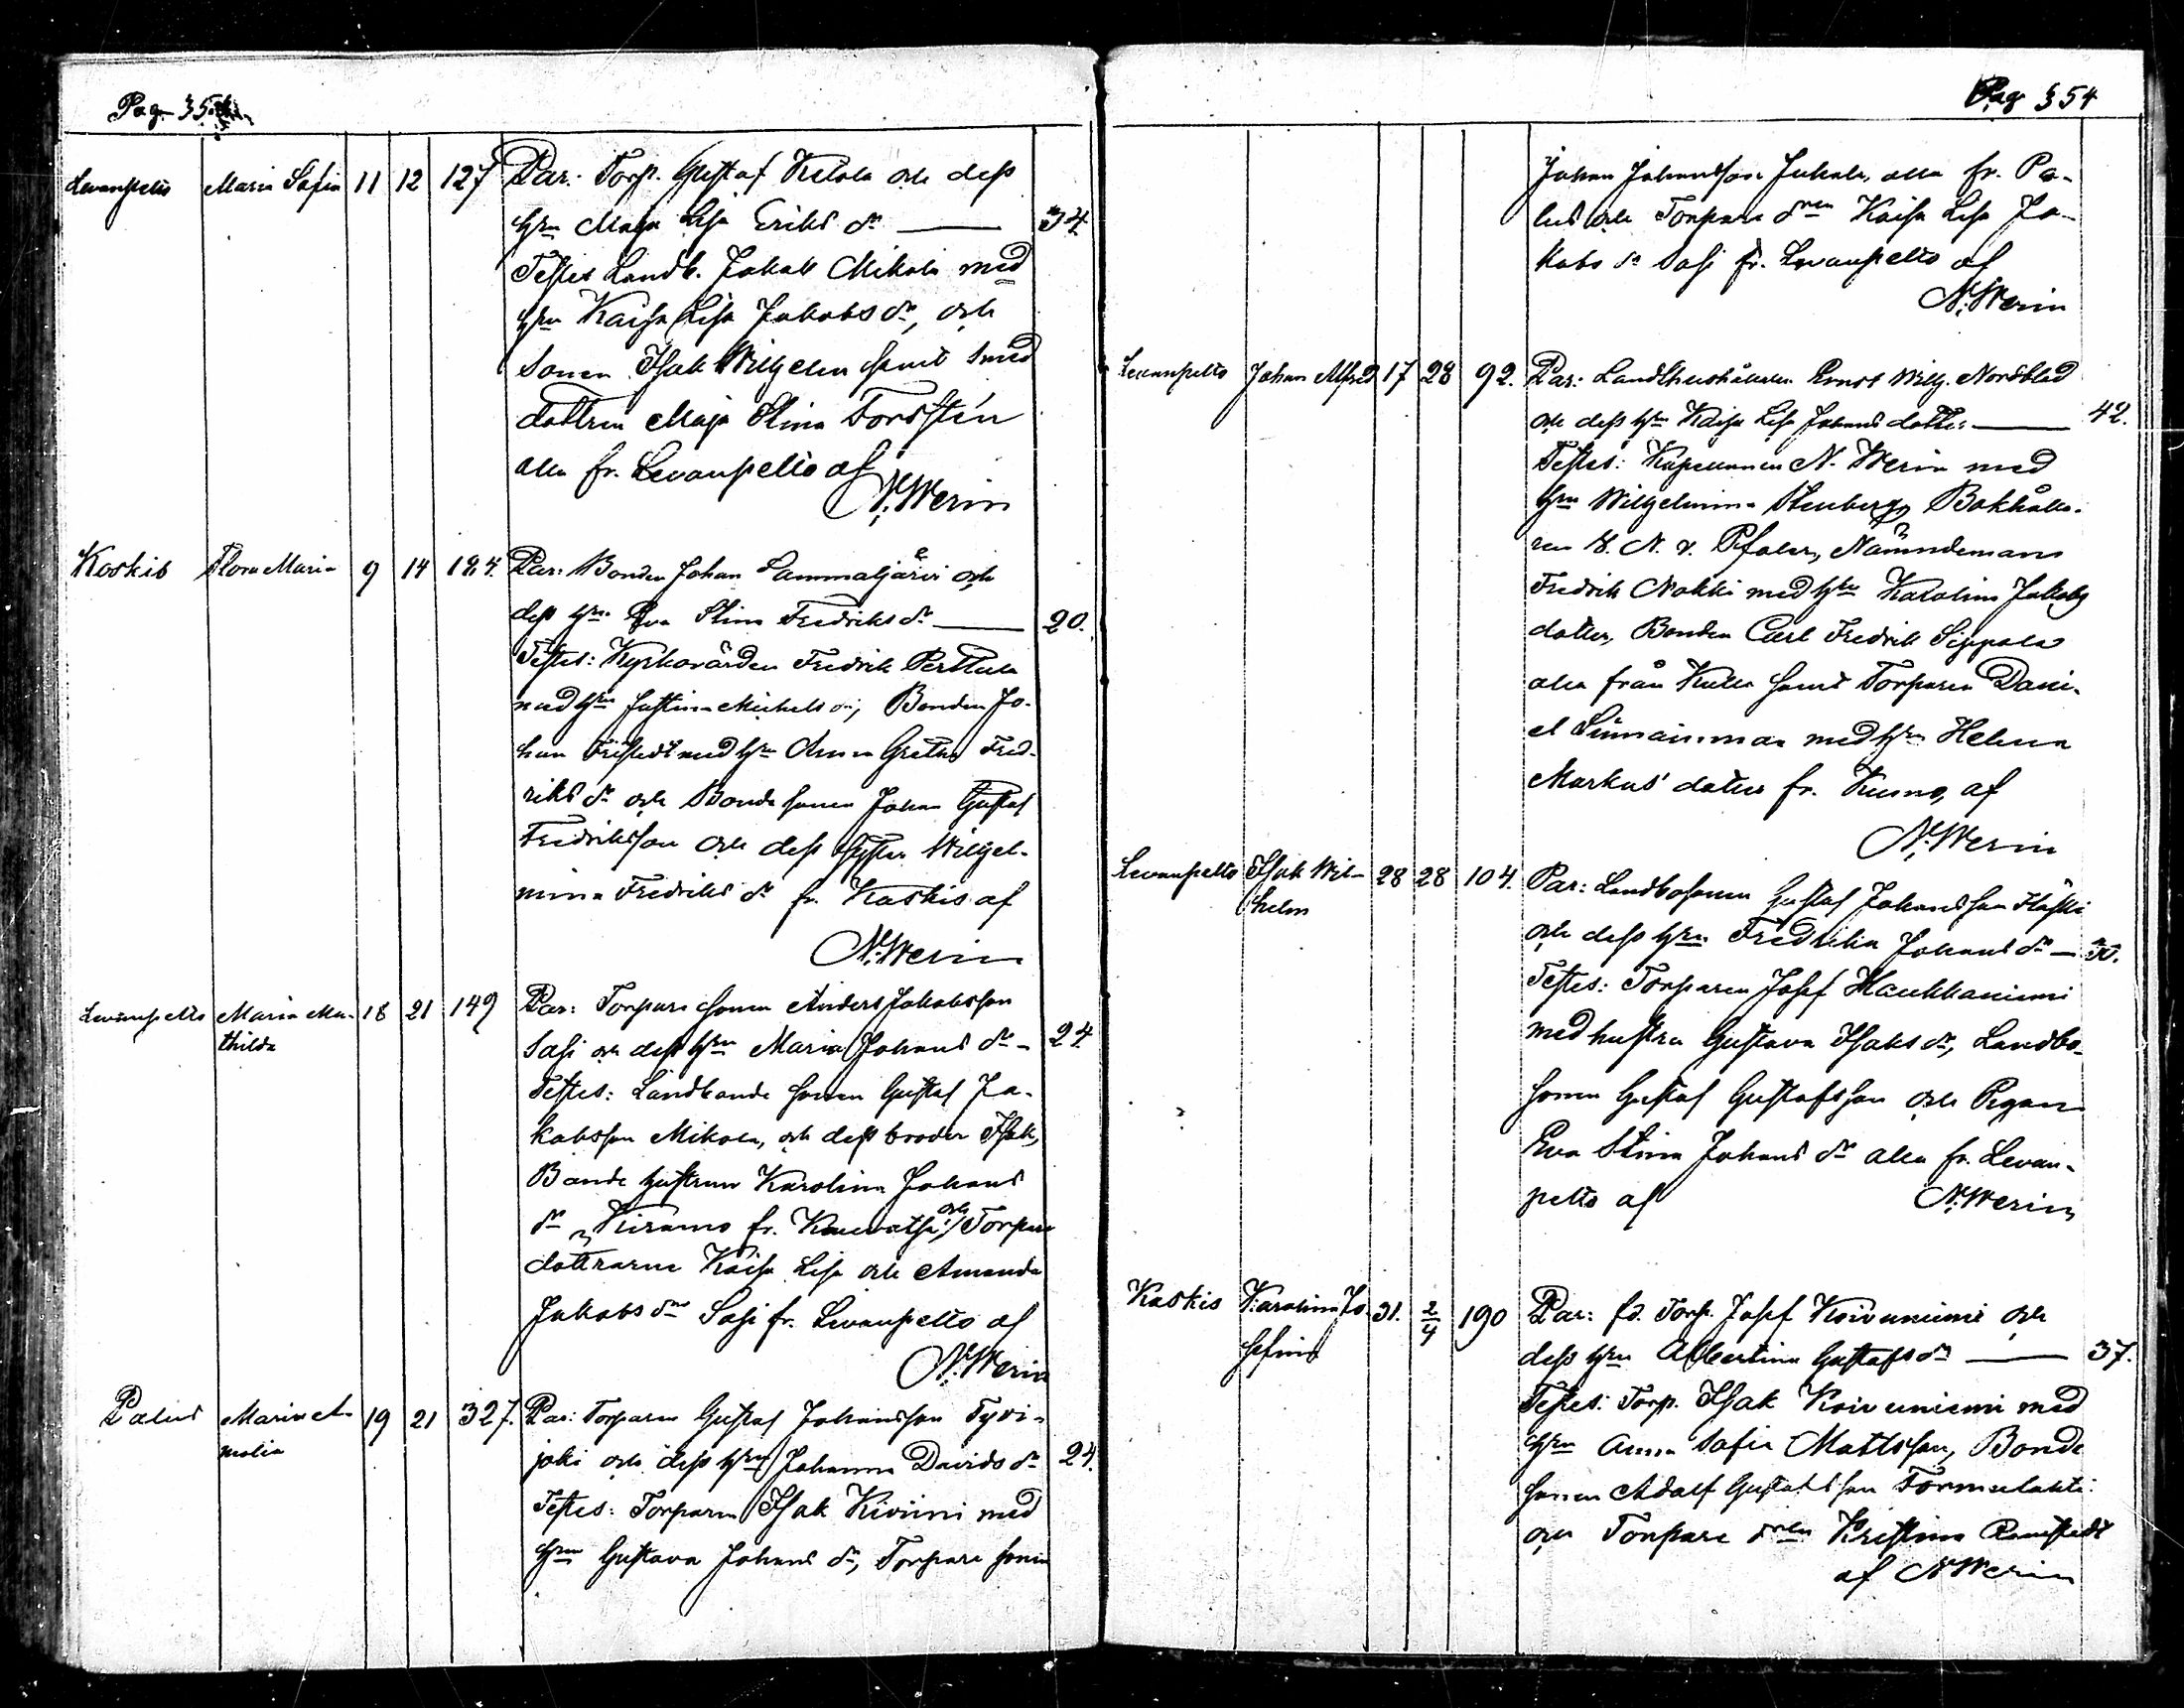 Pag. 35
Levanpelto Maria Sofia 11 12 127 Par: Torp. Gustaf Ketola och dess
hru Maja Lisa Eriks dr 34
Testes Landb. Jakob Mikola med
hru Kaisa Lisa Jakobs dr, och
Sonen Isak Wilhelm samt Smed
dottren Maja Stina Forssten
alla fr. Levanpelto af
N. Werin
Koskis Flora Maria 9 14 184. Par: Bonden Johan Sammaljärvi och
dess hru Eva Stina Fredriks dr 20.
Testes: Kyrkovärden Fredrik Perttula
med hru Justina Michels dr, Bonden Jo-
han Fristedt med hru Anna Greta Fred-
riks dr och Bonde sonen Johan Gustaf
Fredriksson och dess Syster Wilhel-
mina Fredriks dr fr. Koskis af
N. Werin
Levanpelto Maria Ma- 18 21 149 Par: Torpare sonen Anders Jakobsson
thilda Sasi och dess hru Maria Johans dr - 24
Testes: Landbonde sonen Gustaf Ja-
kobsson Mikola, och dess broder Isak,
Bonde hustrun Karolina Johans
dr Kiramo fr. och Torpare
dottrarne Kaisa Lisa och Amanda
Jakobs dr Sasi fr. Levanpelto af
N. Werin
Palus Maria A- 19 21 327. Par: Torparen Gustaf Johansson Tyvi-
malia joki och dess hru Johanna Davids dr 24.
Testes: Torparen Isak Kiviini med
hru Gustava Johans dr, Torpare sonen
Pag 354
Johan Johansson Juhala, alla fr. Pa-
lus och Torpare dren Kaisa Lisa Ja-
kobs dr Sasi fr. Levanpelto af
N. Werin
Levanpelto Johan Alfred 17 28 92. Par: Landthushållaren Ernst Wilh. Nordblad
och dess hru Kaisa Lisa Johans dotter 42.
Testes: Kapellanen N. Werin med
hru Wilhelmina Stenberg, Bokhålla-
ren K. N. v. Pfaler, Nämndemans
Fredrik Nakki med hru Karolina Jakobs
dotter, Bonden Carl Fredrik Sippola
alla från Kulla samt Torparen Dani-
el med hru Helena
Markus dotter fr. Kumo, af
N. Werin
Levanpelto Isak Wil- 28 28 104. Par: Landbosonen Gustaf Johansson
helm och dess hru Fredrika Johans dr - 30.
Testes: Torparen Josef Haukkaniemi
med hustru Gustava Isaks dr, Landbo-
sonen Gustaf Gustafsson och Pigan
Eva Stina Johans dr alla fr. Levan-
pelto af N. Werin
Koskis Karolina Jo- 31. 2/4 190 Par: fd. Torp. Josef Koivuniemi och
sefina dess hru Albertina Gustafs dr 37.
Testes: Torp. Isak Koivuniemi med
hru Anna Sofia Mattsson, Bonde
sonen Adolf Gustafsson Tormulahti
och Torpare dren Kristina Ramstedt
af N. Werin